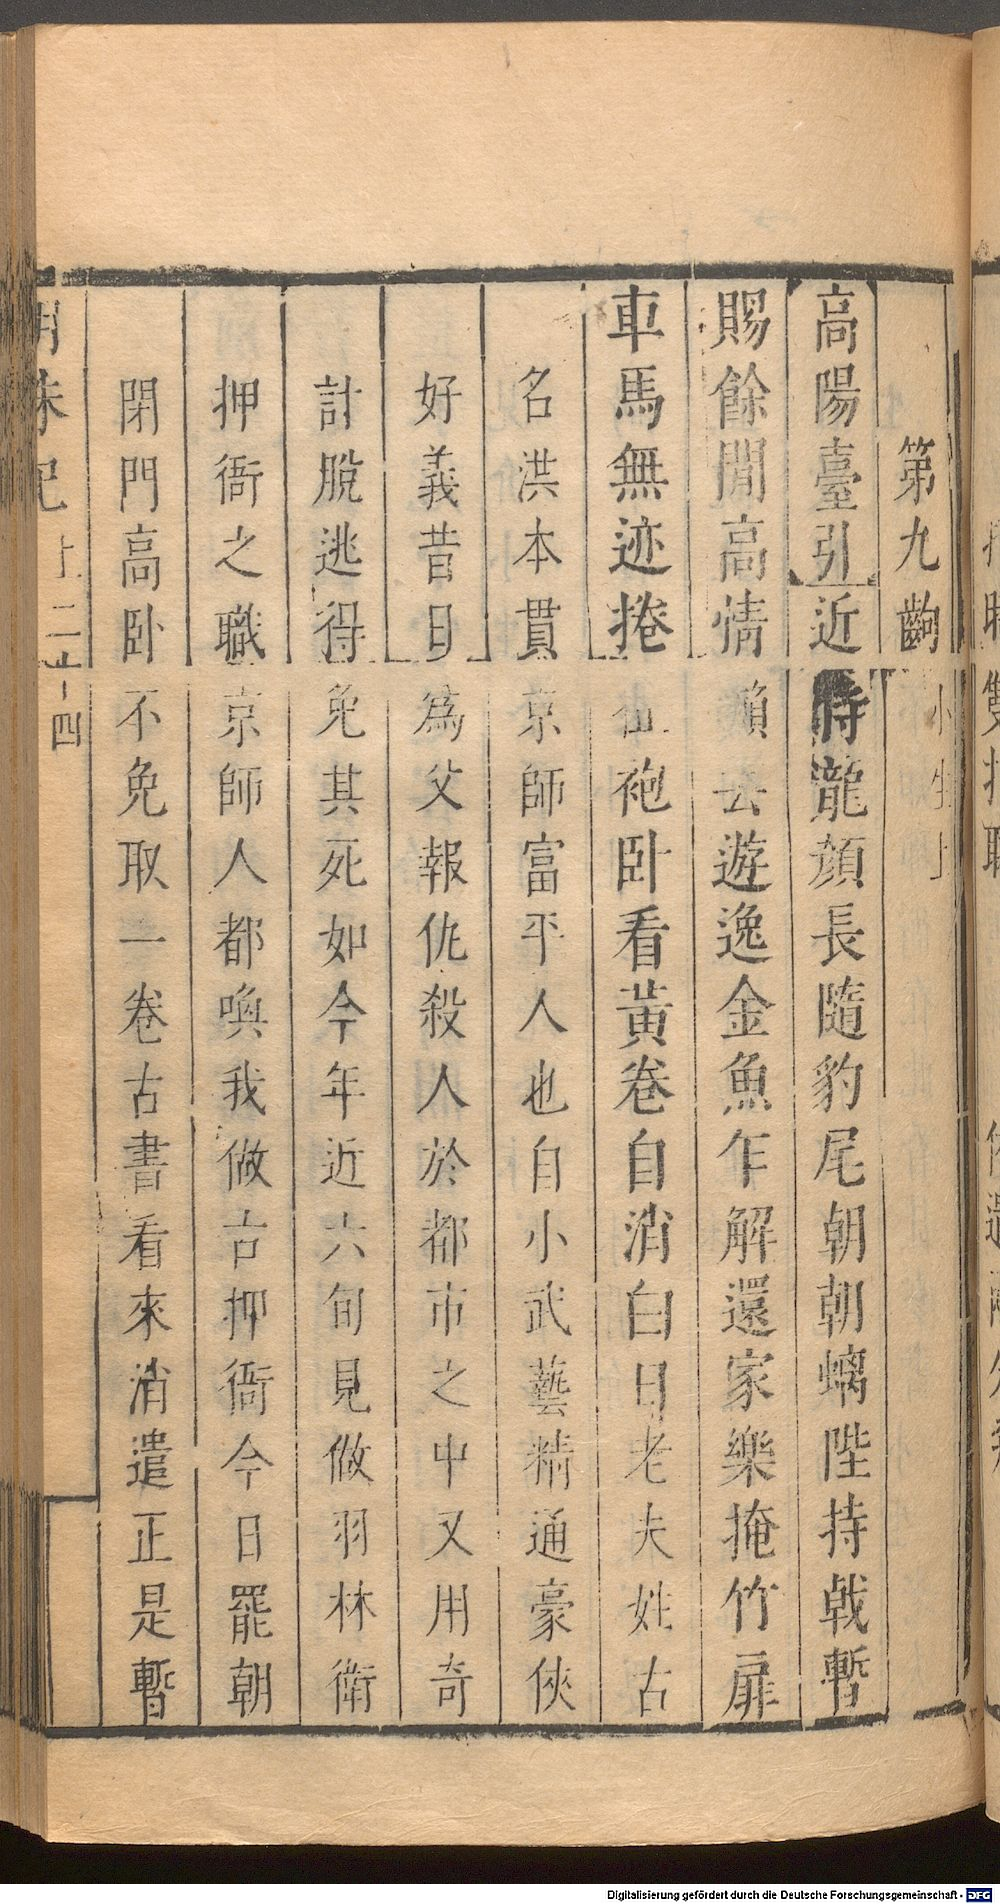 第九齣 小生上
高陽臺引近侍龍顏長隨豹尾朝朝螭陛持戟暫
賜餘閒高情頻去遊逸金魚乍解還家樂掩竹扉
車馬無迹捲袍卧看黃卷自消白日老夫姓古
名洪本貫京師富平人也自小武藝精通豪俠
好義昔日爲父報仇殺人於都市之中又用奇
計脫逃得免其死如今年近六旬見做羽林衛
押衙之職京師人都喚我做古押衙今日罷朝
閉門高卧不免取一卷古書看來消遣正是暫
明珠記 上 二十四
Digitalisierung gefördert durch die Deutsche Forschungsgemeinschaft - DFG